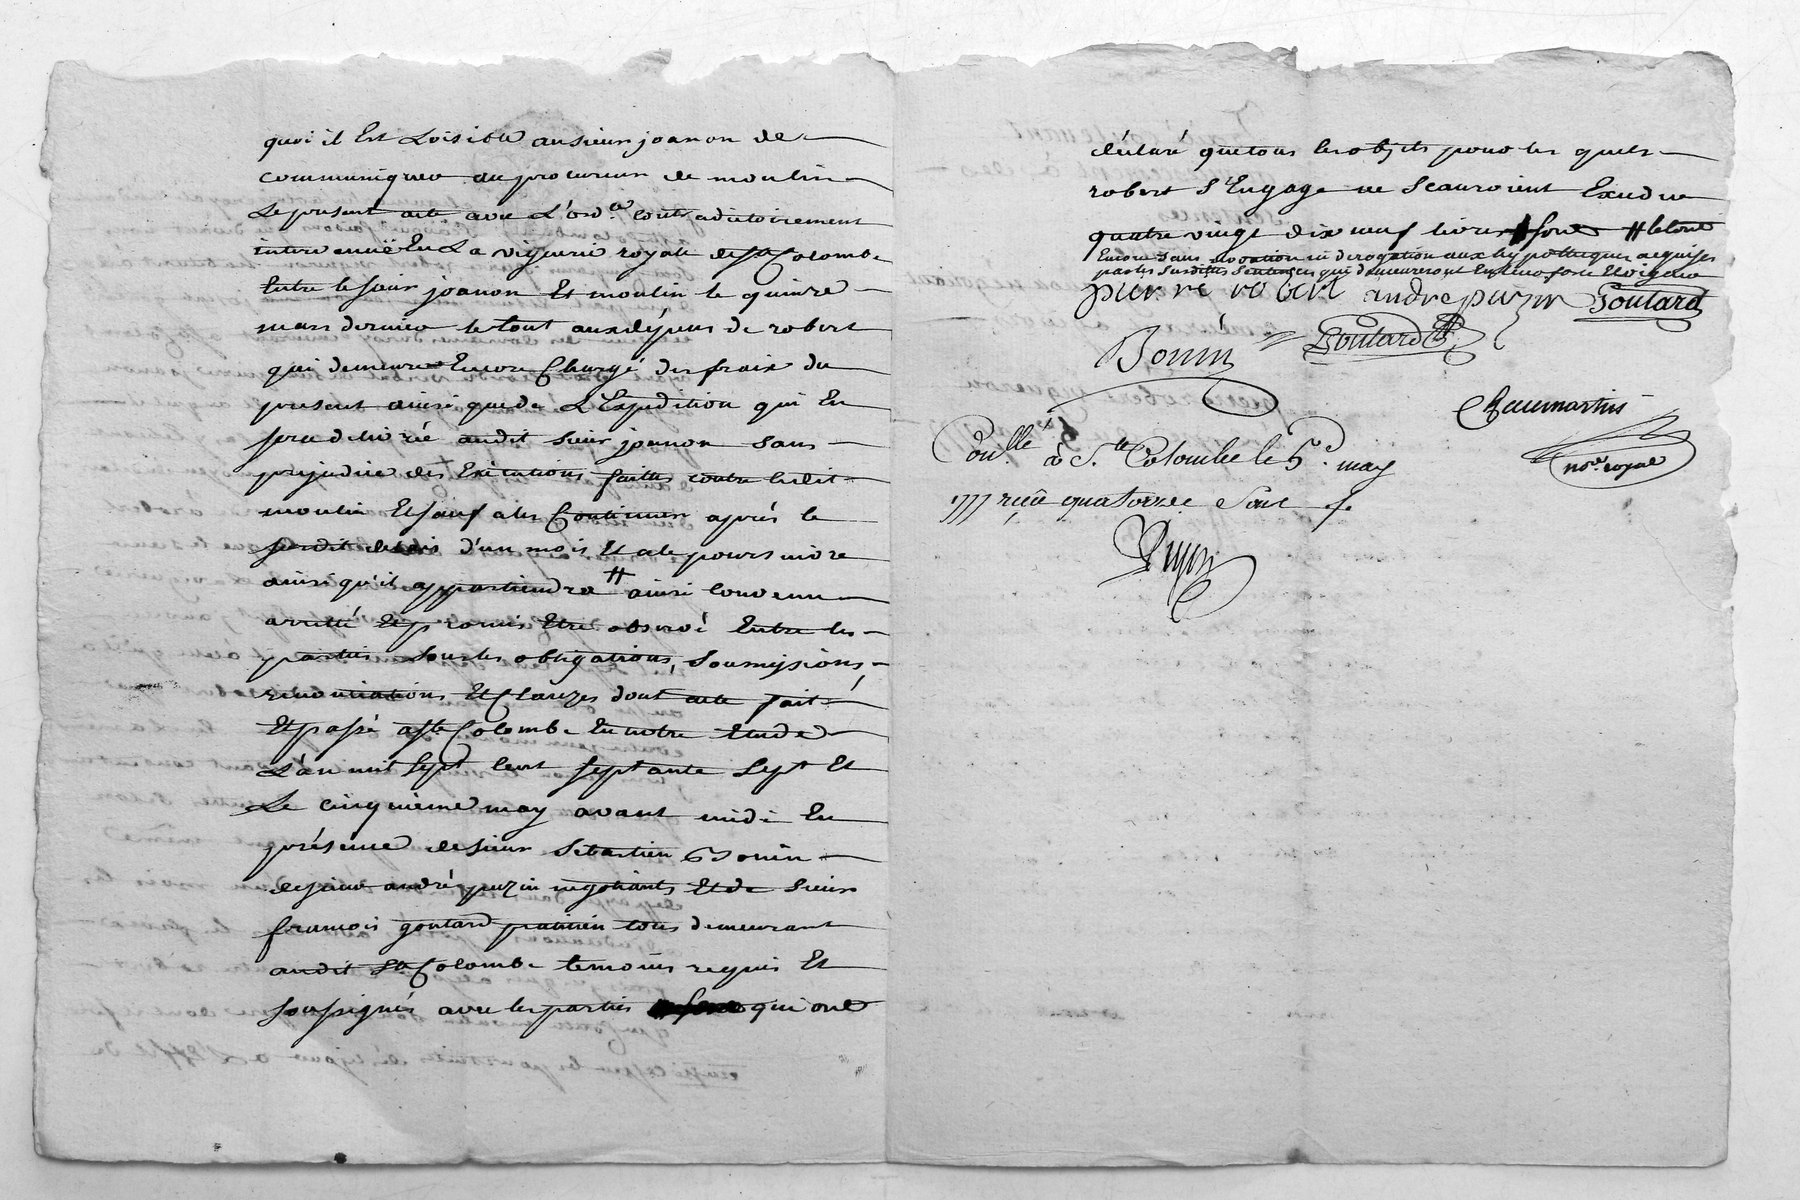 quoi il Est Loisible au sieur joanon de
communiquer au procureur de moulin
Le present acte avec L'ord.ce contradictoirement
intervenuë En La viguerie royalle de ste Colombe
Entre le sieur joanon Et moulin le quinze
mars dernier le tout aux dépens de robert
qui demeure Encore Chargé des fraix du
present ainsi que de L'Expedition qui En
sera delivrée audit sieur joanon sans
prejudice des Exécutions faittes contre ledit
moulin Et sauf a les Continuer après le
susdit delais d'un mois Et a le poursuivre
ainsi qu'il appartiendra # ainsi convenu
arretté Et promis Etre observé Entre les
parties sous les obligations, soumissions,
renontiations Et Clauzes dont acte fait
Et passé a ste Colombe En notre Etude
L'an mil sept cent septante sept Et
Le cinquieme may avant midi En
présence de sieur Sebastien Bonin
de sieur andré puzin negotiants Et de sieur
françois goutard praticien tous demeurant
audit Ste Colombe temoins requis Et
soussignés avec les parties qui ont
déclaré que tous les objets pour les quels
robert s'Engage ne scauroient Exedre
quatre vingt dix neuf livres # le tout
Encore sans novation ni derogation aux hypotteques acquises
par les susdittes sentences qui demeureront En leur force Et vigueur
pierre robert andre puzin Goutard
Bonin Goutard
Chaumartin
no.re royal
Con.lle à S.te Colombe le 5.e may
1777 reçû quatorze sous